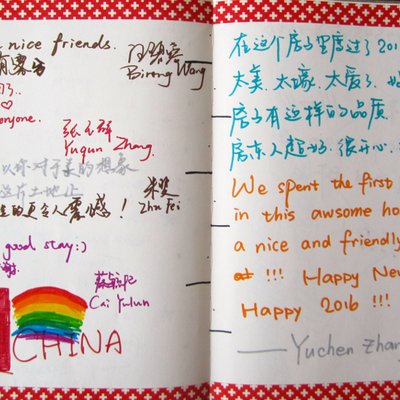 nice friends.
Bireng Wang
了..
everyone.
张玉群
Yuqun Zhang
以你对于美的想象
这片土地止
的更令人震撼！
Zhu Fei
good stay:)
谢
Cai Yulun
CHINA
在这个房子里度过了201
太美.太壕.太爱了.
房子有这样的品质
房东人超好.很开心.
We spent the first
in this awsome ho
a nice and friendly
!!! Happy New
Happy 2016 !!!
——Yuchen Zhang